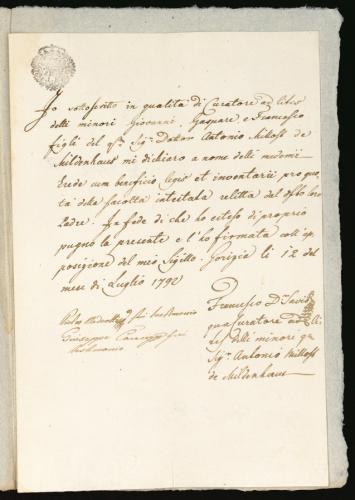 Io sottoscritto in qualità di Curatore ad lites
delli minori Giovanni, Gaspare e Francesco
figli del qm Sigr Dottor Antonio Mikoss de
Mildenhaus mi dichiaro a nome delli medemi
Erede cum beneficio legis et inventarii pro quo
ta della facoltà intestata relitta del loro
Padre. In fede di che ho esteso di proprio
pugno la presente e l'ho firmata coll'ap
posizione del mio Sigillo. Gorizia li 12 del
mese di Luglio 1790
fui Testimonio
Giuseppe
Testimonio
Francesco Dr
qua Curatore ad li
tes delli minori qm
Sigr Antonio Mikoss
de Mildenhaus